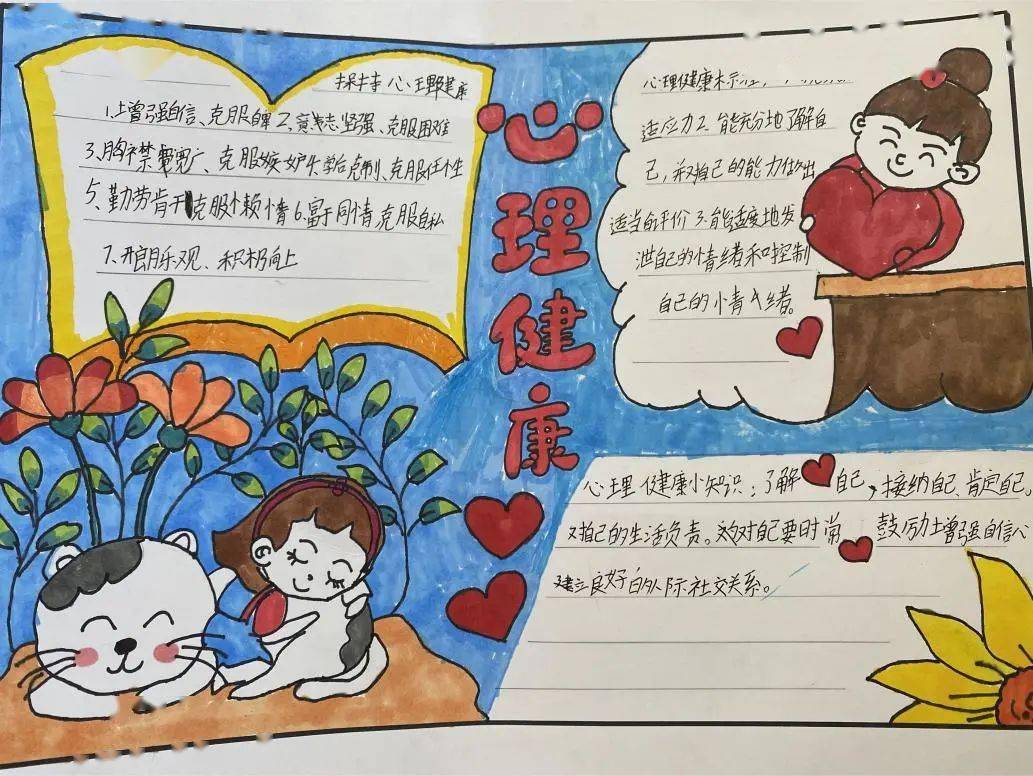 保持心理健康
1.增强自信、克服自卑 2、意志坚强、克服困难
3、胸襟宽广、克服嫉妒 4、学会克制、克服任性
5、勤劳肯干克服懒惰 6.富于同情克服自私
7、开朗乐观、积极向上
心理健康
心理健康标准
适应力 2、能充分地了解自
己,并对自己的能力做出
适当的评价 3.能适度地发
泄自己的情绪和控制
自己的情绪。
心理健康小知识:了解自己,接纳自己、肯定自己,
对自己的生活负责。对自己要时常鼓励增强自信心
建立良好的人际社交关系。